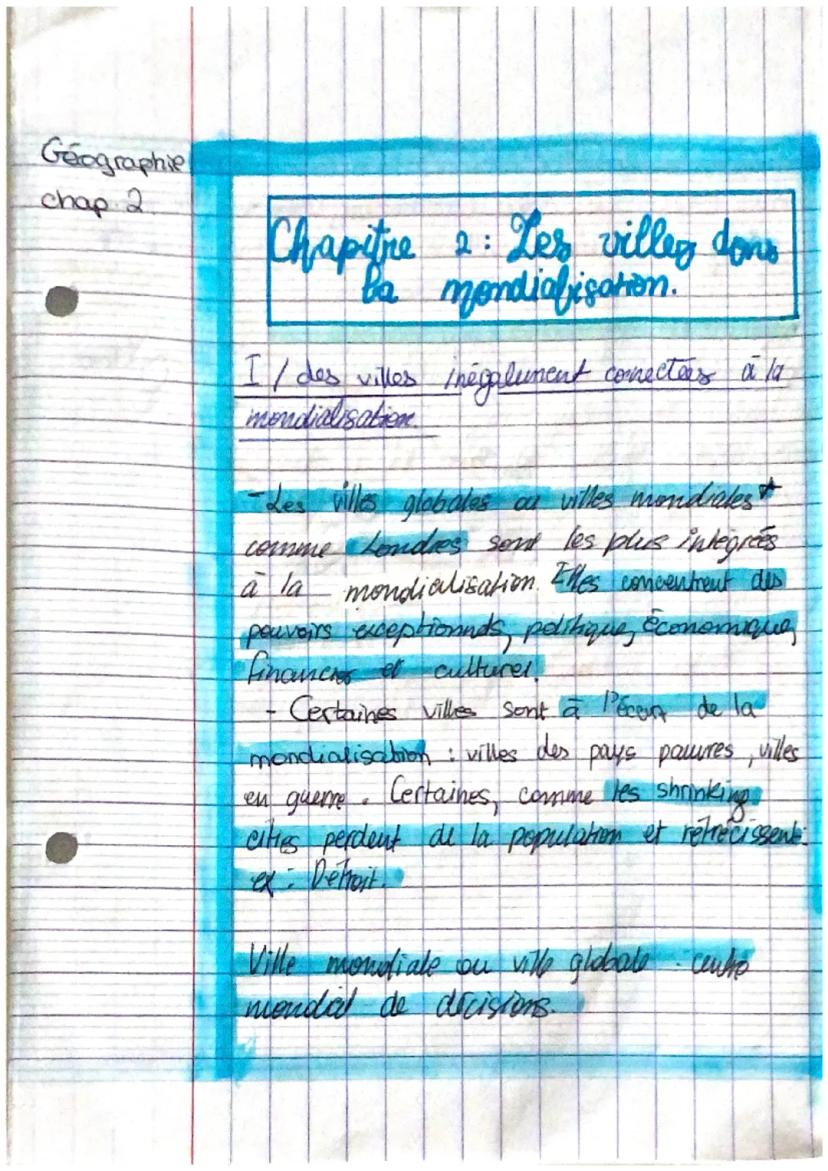 Géographie
chap. 2
Chapitre 2 : Les villes dans
la mondialisation.
I / des villes inégalement connectées à la
mondialisation
- Les villes globales ou villes mondiales*
comme Londres sont les plus intégrées
à la mondialisation. Elles concentrent des
pouvoirs exceptionnels, politique, économique,
financier et culturel.
- Certaines villes sont à l'écart de la
mondialisation : villes des pays pauvres, villes
en guerre. Certaines, comme les shrinking
cities perdent de la population et rétrécissent.
ex : Détroit.
Ville mondiale ou ville globale : centre
mondial de décisions.